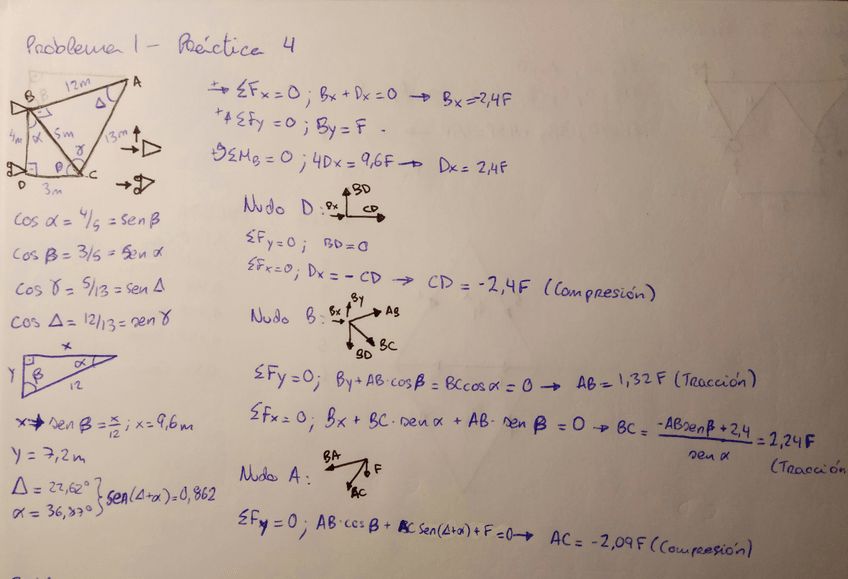 Problema 1 - Práctica 4
12m
A
B
Δ
4m
α
5m
13m
γ
β
D
3m
C
cos α = 4/5 = sen β
cos β = 3/5 = sen α
cos γ = 5/13 = sen Δ
cos Δ = 12/13 = sen γ
x
y
β
α
12
x → sen β = x/12 ; x = 9,6 m
y = 7,2 m
Δ = 22,62°
α = 36,87°
} sen(Δ+α) = 0,862
ΣFx = 0 ; Bx + Dx = 0 → Bx = -2,4F
ΣFy = 0 ; By = F
ΣMB = 0 ; 4Dx = 9,6F → Dx = 2,4F
Nudo D:
Dx
BD
CD
ΣFy = 0 ; BD = 0
ΣFx = 0 ; Dx = - CD → CD = -2,4F (Compresión)
Nudo B:
Bx
By
AB
BC
BD
ΣFy = 0 ; By + AB·cos β = BC cos α = 0 → AB = 1,32F (Tracción)
ΣFx = 0 ; Bx + BC · sen α + AB · sen β = 0 → BC = (-AB sen β + 2,4)/sen α = 2,24F
(Tracción
Nudo A:
BA
F
AC
ΣFy = 0 ; AB·cos β + AC sen(Δ+α) + F = 0 → AC = -2,09F (Compresión)